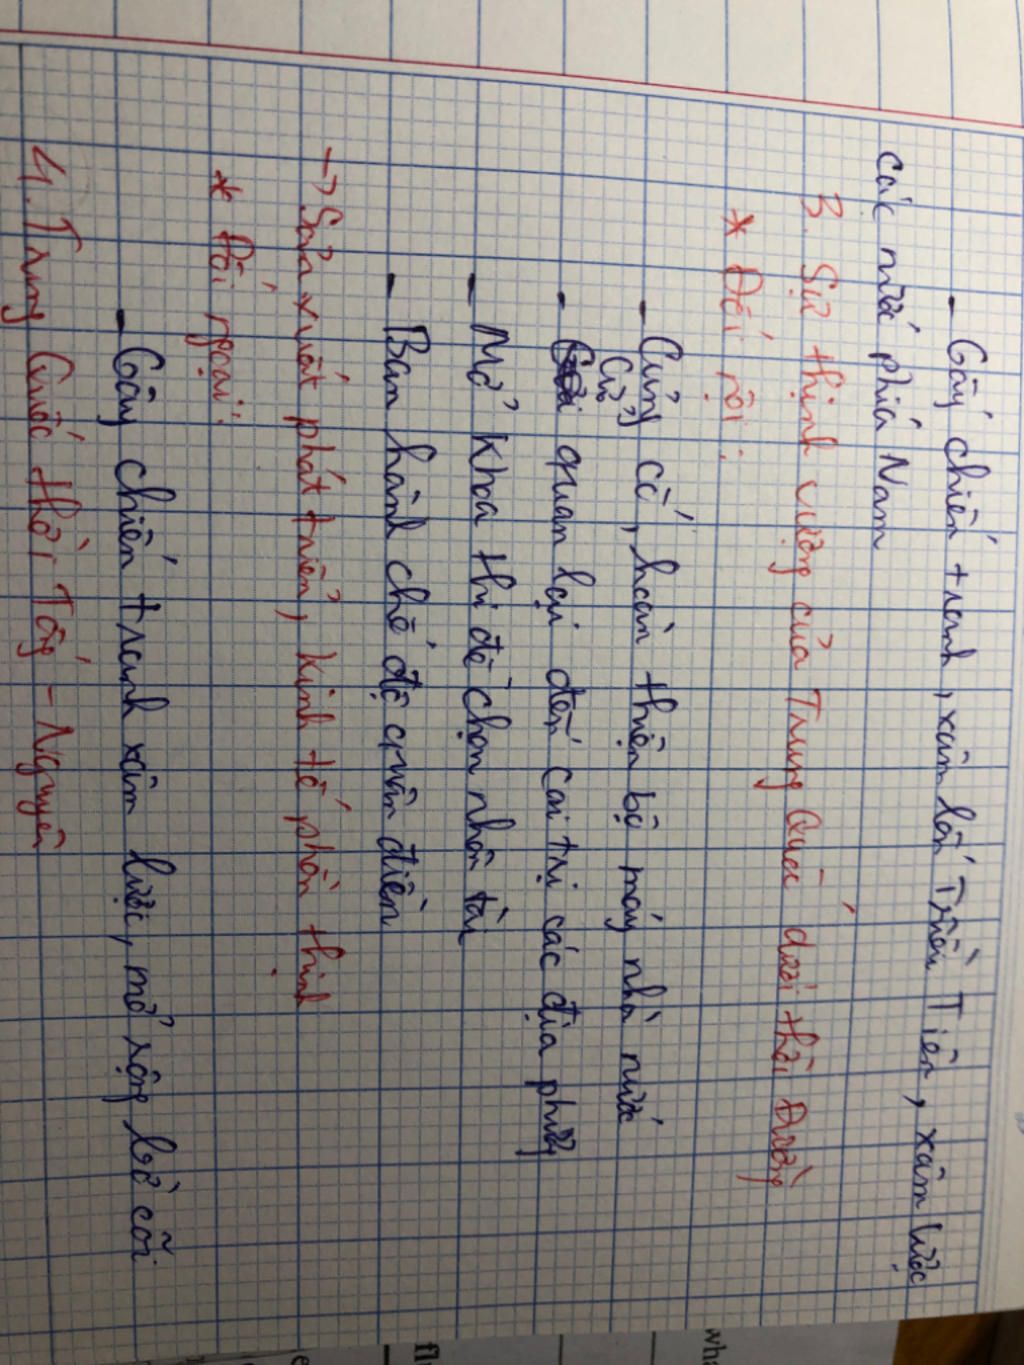 - Gây chiến tranh, xâm lấn Triều Tiên, xâm lược
các nước phía Nam
3. Sự thịnh vượng của Trung Quốc dưới thời Đường
* Đối nội:
- Củng cố, hoàn thiện bộ máy nhà nước
- Cử quan lại đến cai trị các địa phương
- Mở khoa thi để chọn nhân tài
- Ban hành chế độ quân điền
→ Sản xuất phát triển, kinh tế phồn thịnh
* Đối ngoại:
- Gây chiến tranh xâm lược, mở rộng bờ cõi
4. Trung Quốc thời Tống - Nguyên
wha